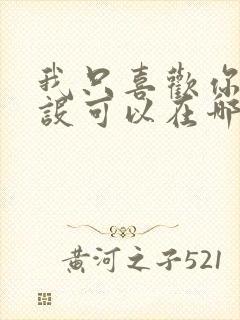 我只喜歡你
設可以在哪
黄河之子521